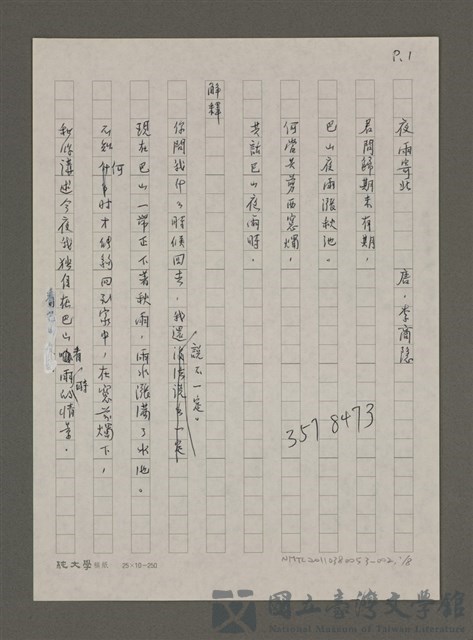 P.1
夜雨寄北　唐．李商隱
君問歸期未有期，
巴山夜雨漲秋池。
何當共剪西窗燭，
共話巴山夜雨時。
解釋
你問我什么時候回去，我還說不一定。
現在巴山一帶正下著秋雨，雨水漲滿了水池。
不知何時才能夠回到家中，在窗前燭下，
和你講述今夜我獨自在巴山看雨時的情景．
3578473
純文學稿紙 25×10=250
NMTL20110380053-002, 1/8
國立臺灣文學館
National Museum of Taiwan Literature